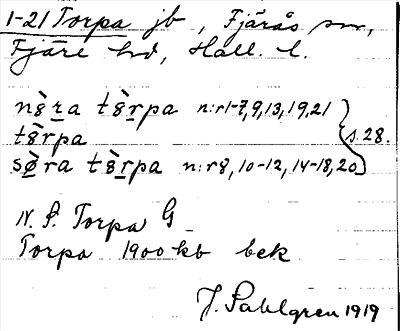 1-21 Torpa jb, Fjärås sn,
Fjäre hd, Hall. l.
nȣ̀ra tȣ̀rpa n:r 1-7, 9, 13, 19, 21
tȣ̀rpa } s. 28.
sø̀ra tȣ̀rpa n:r 8, 10-12, 14-18, 20
N. S. Torpa G
Torpa 1900 kb bek
J. Sahlgren 1919